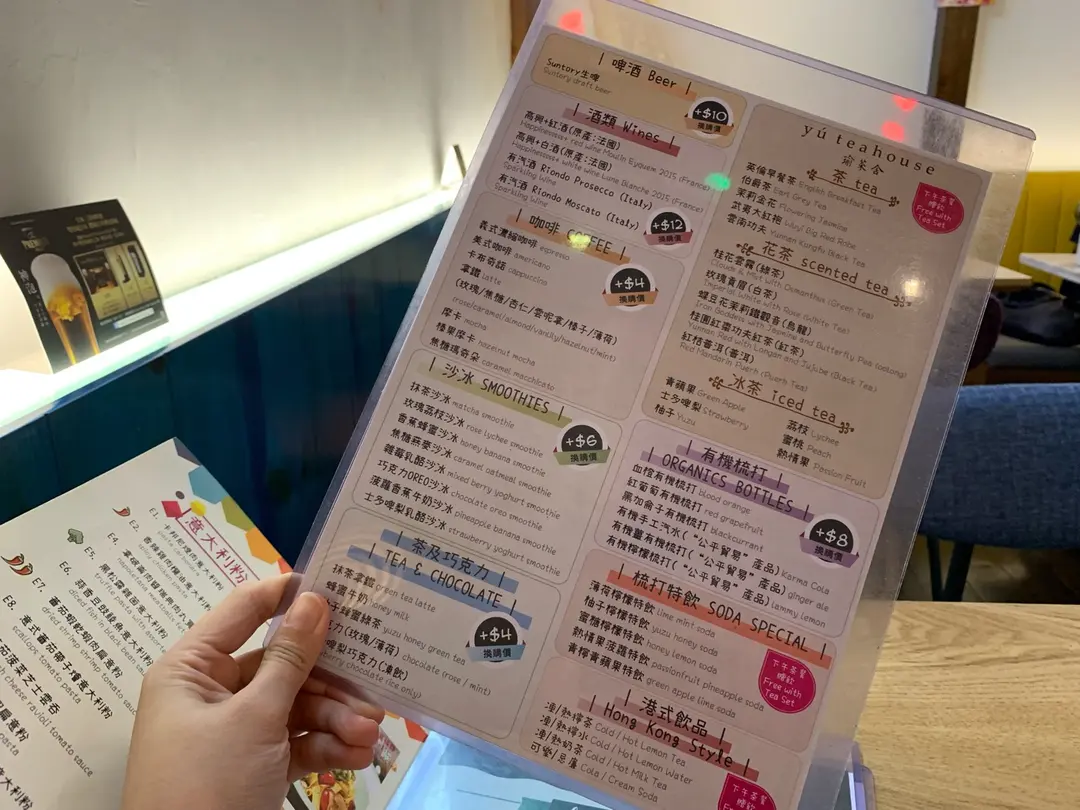 啤酒 Beer
Suntory生啤
Suntory draft beer
+$10
換購價
酒類 Wines
高興+紅酒(原產:法國)
高興+白酒(原產:法國)
有汽酒 Riondo Prosecco (Italy)
Sparkling Wine
有汽酒 Riondo Moscato (Italy)
Sparkling Wine
+$12
換購價
咖啡 COFFEE
義式濃縮咖啡 espresso
美式咖啡 americano
卡布奇諾 cappuccino
拿鐵 latte
(玫瑰/焦糖/杏仁/雲呢拿/榛子/薄荷)
(rose/caramel/almond/vanilly/hazelnut/mint)
摩卡 mocha
榛果摩卡 hazelnut mocha
焦糖瑪奇朵 caramel macchicato
+$4
換購價
沙冰 SMOOTHIES
抹茶沙冰 matcha smoothie
玫瑰荔枝沙冰 rose lychee smoothie
香蕉蜂蜜沙冰 honey banana smoothie
焦糖燕麥沙冰 caramel oatmeal smoothie
雜莓乳酪沙冰 mixed berry yoghurt smoothie
巧克力OREO沙冰 chocolate oreo smoothie
菠蘿香蕉牛奶沙冰 pineapple banana smoothie
士多啤梨乳酪沙冰 strawberry yoghurt smoothie
+$6
換購價
茶及巧克力
TEA & CHOCOLATE
抹茶拿鐵 green tea latte
蜂蜜牛奶 honey milk
子蜂蜜綠茶 yuzu honey green tea
力(玫瑰/薄荷) chocolate (rose / mint)
啤梨巧克力(凍飲)
+$4
換購價
yú teahouse
茶 tea
英倫早餐茶 English Breakfast Tea
伯爵茶 Earl Grey Tea
茉莉金花 Flowering Jasmine
武夷大紅袍 Wuyi Big Red Robe
雲南功夫 Yunnan Kungfu Black Tea
下午茶餐
Free with
Tea Set
花茶 scented tea
桂花雲霧(綠茶)
Clouds & Mist with Osmanthus (Green Tea)
玫瑰貢眉(白茶)
Imperial White with Rose (White Tea)
蝶豆花茉莉鐵觀音(烏龍)
Iron Goddess with Jasmine and Butterfly Pea (oolong)
桂圓紅棗功夫紅茶(紅茶)
Yunnan Red with Longan and Jujube (Black Tea)
紅桔普洱(普洱)
Red Mandarin Puerh (Puerh Tea)
冰茶 iced tea
青蘋果 Green Apple
士多啤梨 Strawberry
柚子 Yuzu
荔枝 Lychee
蜜桃 Peach
熱情果 Passion Fruit
有機梳打
ORGANICS BOTTLES
血橙有機梳打 blood orange
紅葡萄有機梳打 red grapefruit
黑加侖子有機梳打 blackcurrant
有機手工汽水("公平貿易"產品) Karma Cola
有機薑有機梳打("公平貿易"產品) ginger ale
有機檸檬梳打("公平貿易"產品) lammy lemon
+$8
換購價
梳打特飲 SODA SPECIAL
薄荷檸檬特飲 lime mint soda
柚子檸檬特飲 yuzu honey soda
蜜糖檸檬特飲 honey lemon soda
熱情果菠蘿特飲 passionfruit pineapple soda
青檸青蘋果特飲 green apple lime soda
下午茶餐
Free with
Tea Set
港式飲品
Hong Kong Style
凍/熱檸茶 Cold / Hot Lemon Tea
凍/熱檸水 Cold / Hot Lemon Water
凍/熱奶茶 Cold / Hot Milk Tea
可樂/忌廉 Cola / Cream Soda
下午茶餐
意大利粉
E1.
E2.
E4.
E5.
E6.
E7
E8.